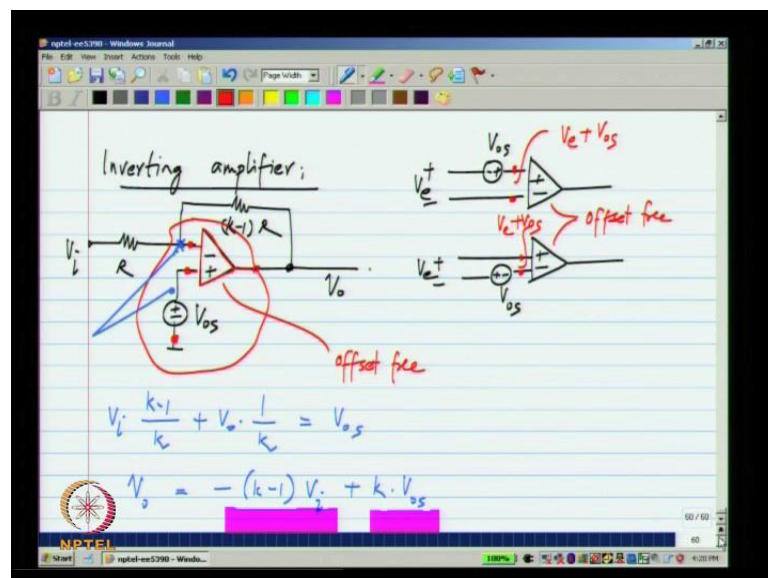 nptel-ee5390 - Windows Journal
File Edit View Insert Actions Tools Help
Page Width
B I
Inverting amplifier;
Vos
Ve + Vos
Ve + -
+ -
(k-1) R
Vi
R
- +
Vo
Vos
offset free
Ve+Vos
offset free
Ve + -
+ -
Vos
Vi (k-1)/k + Vo . 1/k = Vos
Vo = - (k-1) Vi + k . Vos
NPTEL
60 / 60
60
Start nptel-ee5390 - Windo...
100% 4:28 PM